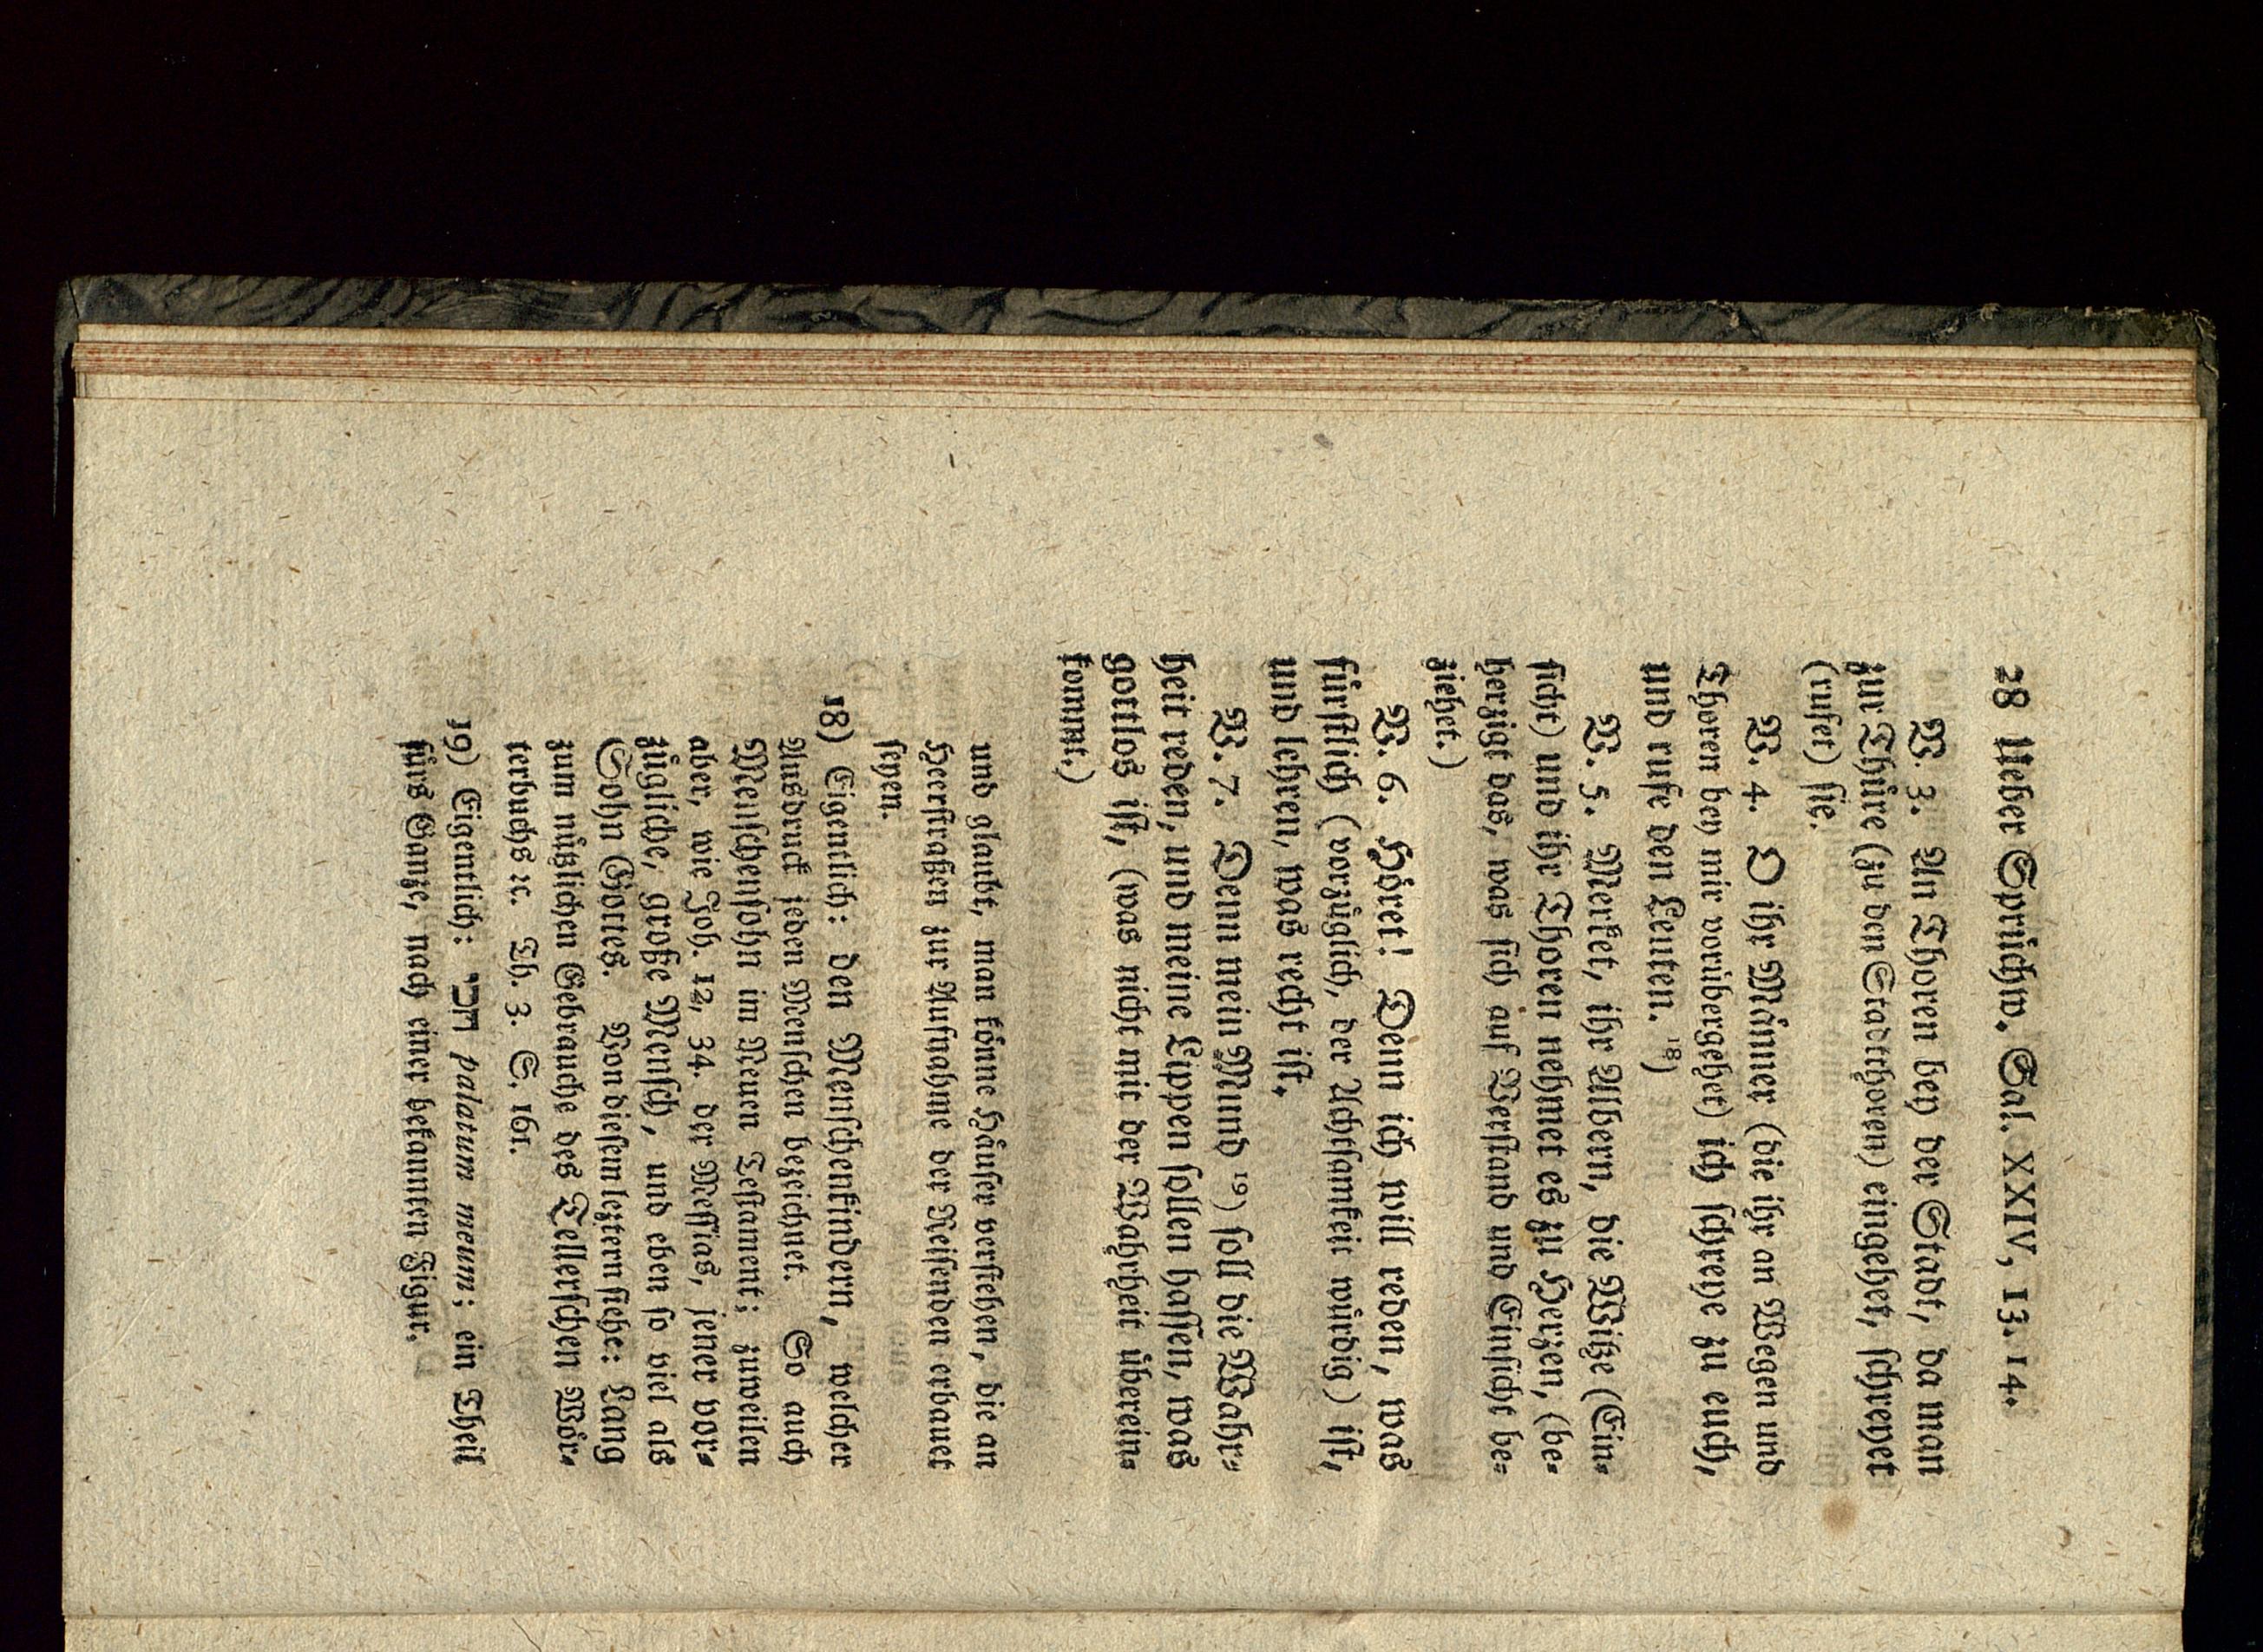 28 Ueber Sprüchw. Sal. XXIV, 13. 14.
V. 3. An Thoren bey der Stadt, da man
zur Thüre (zu den Stadtthoren) eingehet, schreyet
(rufet) sie.
V. 4. O ihr Männer (die ihr an Wegen und
Thoren bey mir vorübergehet) ich schreye zu euch,
und rufe den Leuten. 18)
V. 5. Merket, ihr Albern, die Wiße (Ein-
sicht) und ihr Thoren nehmet es zu Herzen, (be-
herzigt das, was sich auf Verstand und Einsicht be-
ziehet.)
V. 6. Höret! Denn ich will reden, was
fürstlich (vorzüglich, der Achtsamkeit würdig) ist,
und lehren, was recht ist.
V. 7. Denn mein Mund 19) soll die Wahr-
heit reden, und meine Lippen sollen hassen, was
gottlos ist, (was nicht mit der Wahrheit überein-
kommt.)
und glaubt, man könne Häuser verstehen, die an
Heerstraßen zur Aufnahme der Reisenden erbauet
seyen.
18) Eigentlich: den Menschenkindern, welcher
Ausdruck jeden Menschen bezeichnet. So auch
Menschensohn im Neuen Testament; zuweilen
aber, wie Joh. 12, 34. der Messias, jener vor-
zügliche, große Mensch, und eben so viel als
Sohn Gottes. Von diesem leztern siehe: Lang
zum nüzlichen Gebrauche des Tellerschen Wör-
terbuchs ꝛc. Th. 3. S. 161.
19) Eigentlich: חכי palatum meum; ein Theil
fürs Ganze, nach einer bekannten Figur.